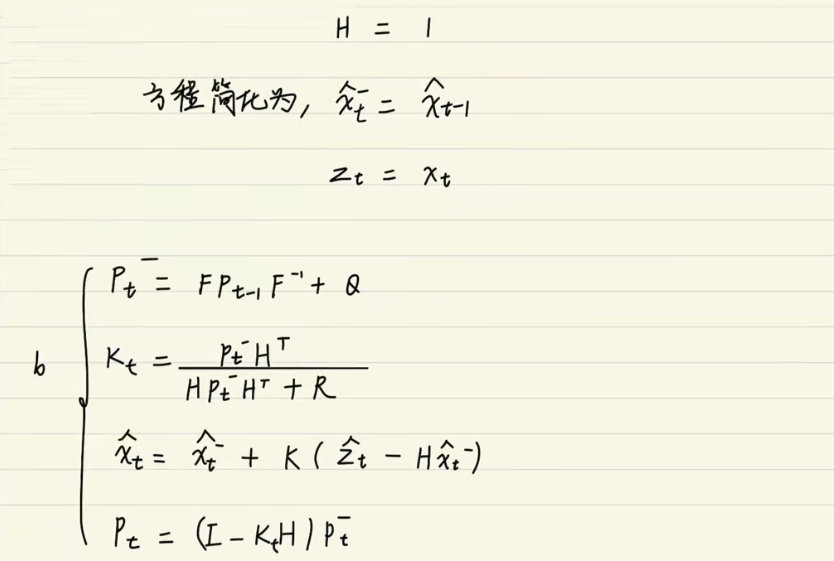 H = 1
方程简化为, x̂ₜ⁻ = x̂ₜ₋₁
zₜ = xₜ
Pₜ⁻ = FPₜ₋₁F⁻¹ + Q
b
Kₜ = Pₜ⁻Hᵀ / HPₜ⁻Hᵀ + R
x̂ₜ = x̂ₜ⁻ + K ( ẑₜ - Hx̂ₜ⁻ )
Pₜ = (I - KₜH) Pₜ⁻